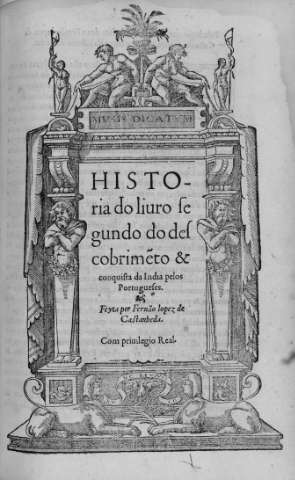 MVSIS DICATVM
HISTO-
ria do liuro ſe
gundo do deſ
cobrimẽto &
conquiſta da India pelos
Portugueſes.
Feyta per Fernão lopez de
Caſtanheda.
Com priuilegio Real.